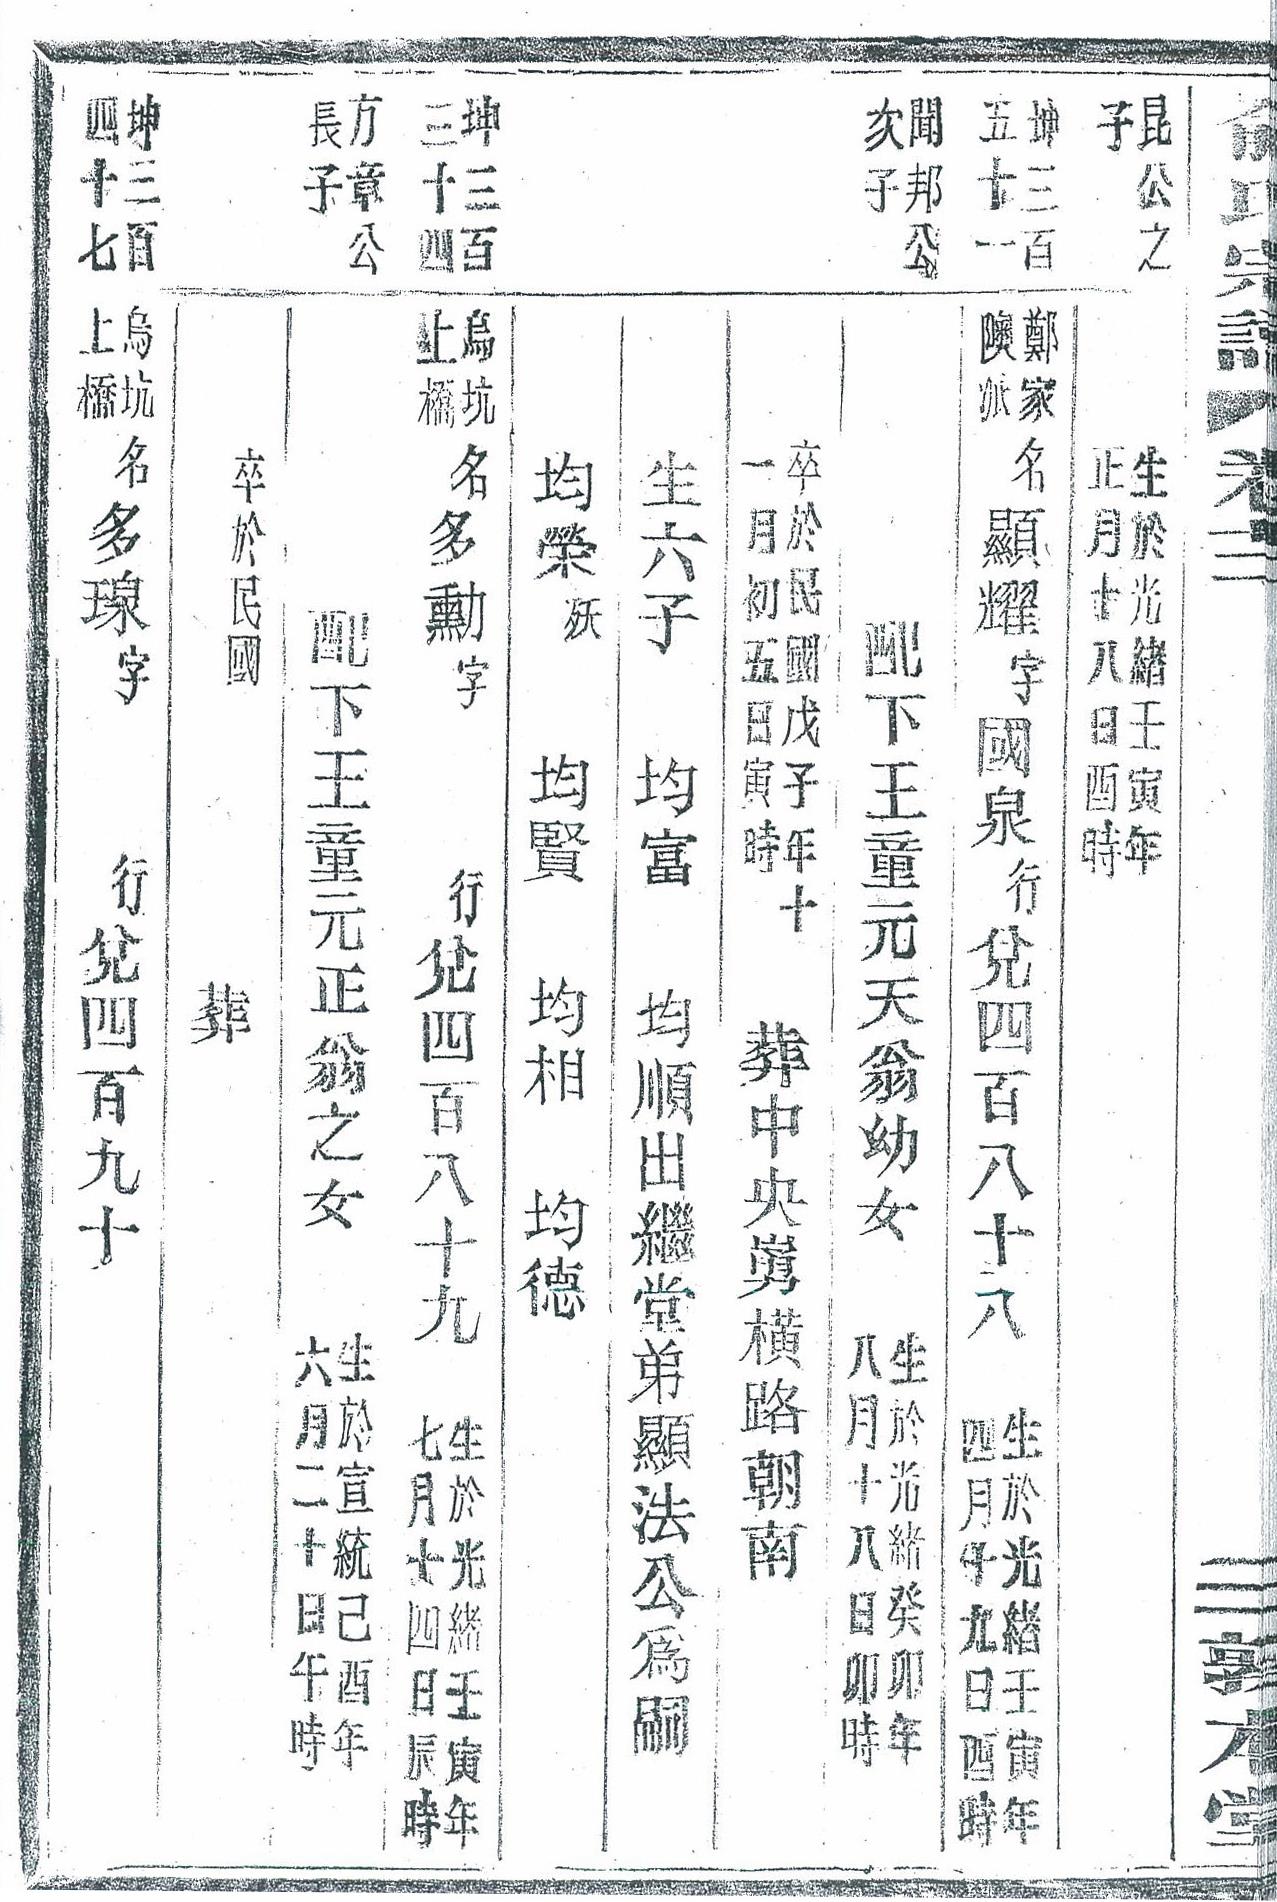 俞氏宗譜 卷二 三 敦本堂
昆公之子
生於光緒壬寅年正月十八日酉時
坤三百五十一
鄭家陝派 名顯耀字國泉行兌四百八十八 生於光緒壬寅年四月十九日酉時
聞邦公次子
配下王童元天翁幼女 生於光緒癸卯年八月十八日卯時
卒於民國戊子年十一月初五日寅時 葬中央塢橫路朝南
生六子 均富 均順出繼堂弟顯法公為嗣
均榮殀 均賢 均相 均德
坤三百三十四
烏坑上橋 名多勳字 行兌四百八十九 生於光緒壬寅年七月十四日辰時
方章公長子
配下王童元正翁之女 生於宣統己酉年六月二十日午時
卒於民國 葬
坤三百四十七
烏坑上橋 名多瑔字 行兌四百九十